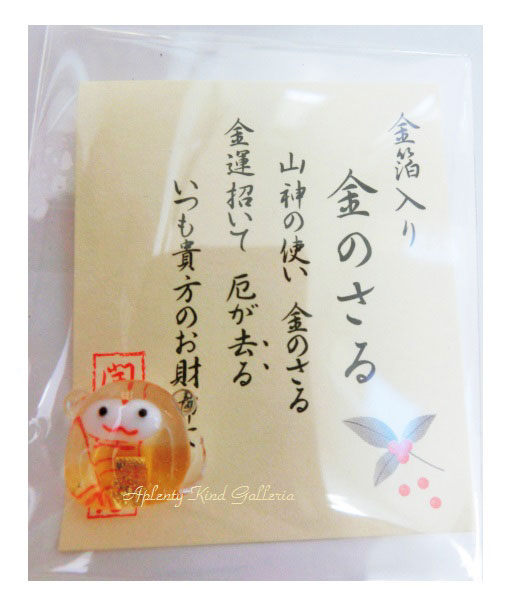 金箔入り
金のさる
山神の使い 金のさる
金運招いて 厄が去る
いつも貴方のお財布に
Aplenty Kind Galleria